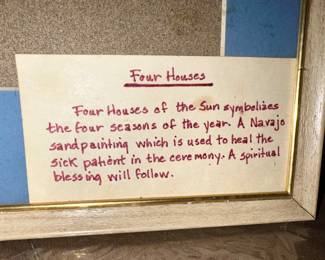 Four Houses
Four Houses of the Sun symbolizes
the four seasons of the year. A Navajo
sandpainting which is used to heal the
sick patient in the ceremony. A spiritual
blessing will follow.